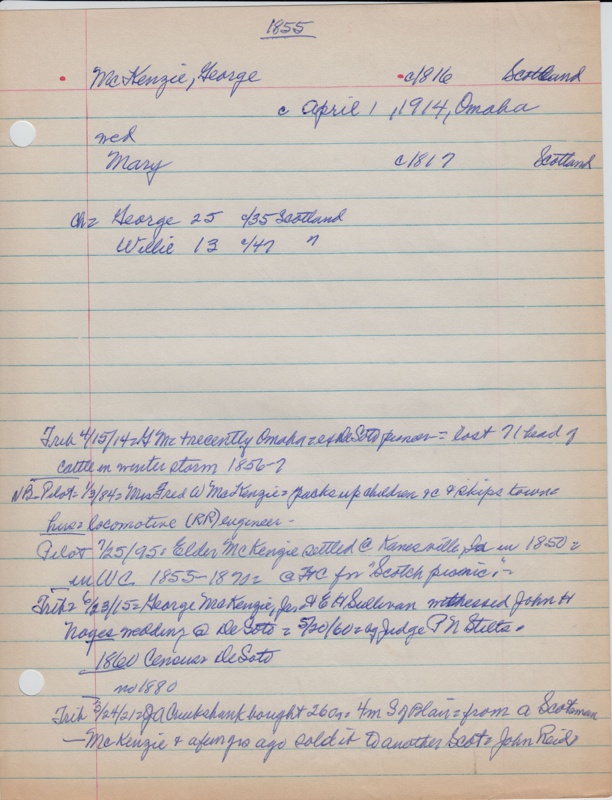 1855
McKenzie, George c1816 Scotland
c April 1, 1914, Omaha
wed
Mary c1817 Scotland
Ch= George 25 c/35 Scotland
Willie 13 c/47 "
Trib 4/15/14= G Mc + recently Omaha= ex DeSoto pioneer= lost 71 head of
cattle in winter storm 1856-7
NB- Pilot= 1/3/84= Mrs Fred W MacKenzie= packs up children &c & skips town=
hus= locomotive (RR) engineer-
Pilot 7/25/95= Elder McKenzie settled @ Kanesville, Ia in 1850=
in WC 1855-1870= @ FC for "Scotch picnic"-
Trib= 6/23/15= George MacKenzie, Jr. & E H Sullivan witnessed John H
Noyes wedding @ DeSoto= 5/20/60= by Judge P N Stilts-
1860 Census= DeSoto
no 1880
Trib 3/24/21= JA Cruikshank bought 260a= 4m S of Blair= from a Scotsman
- McKenzie & a few yrs ago sold it to another Scot= John Reid=